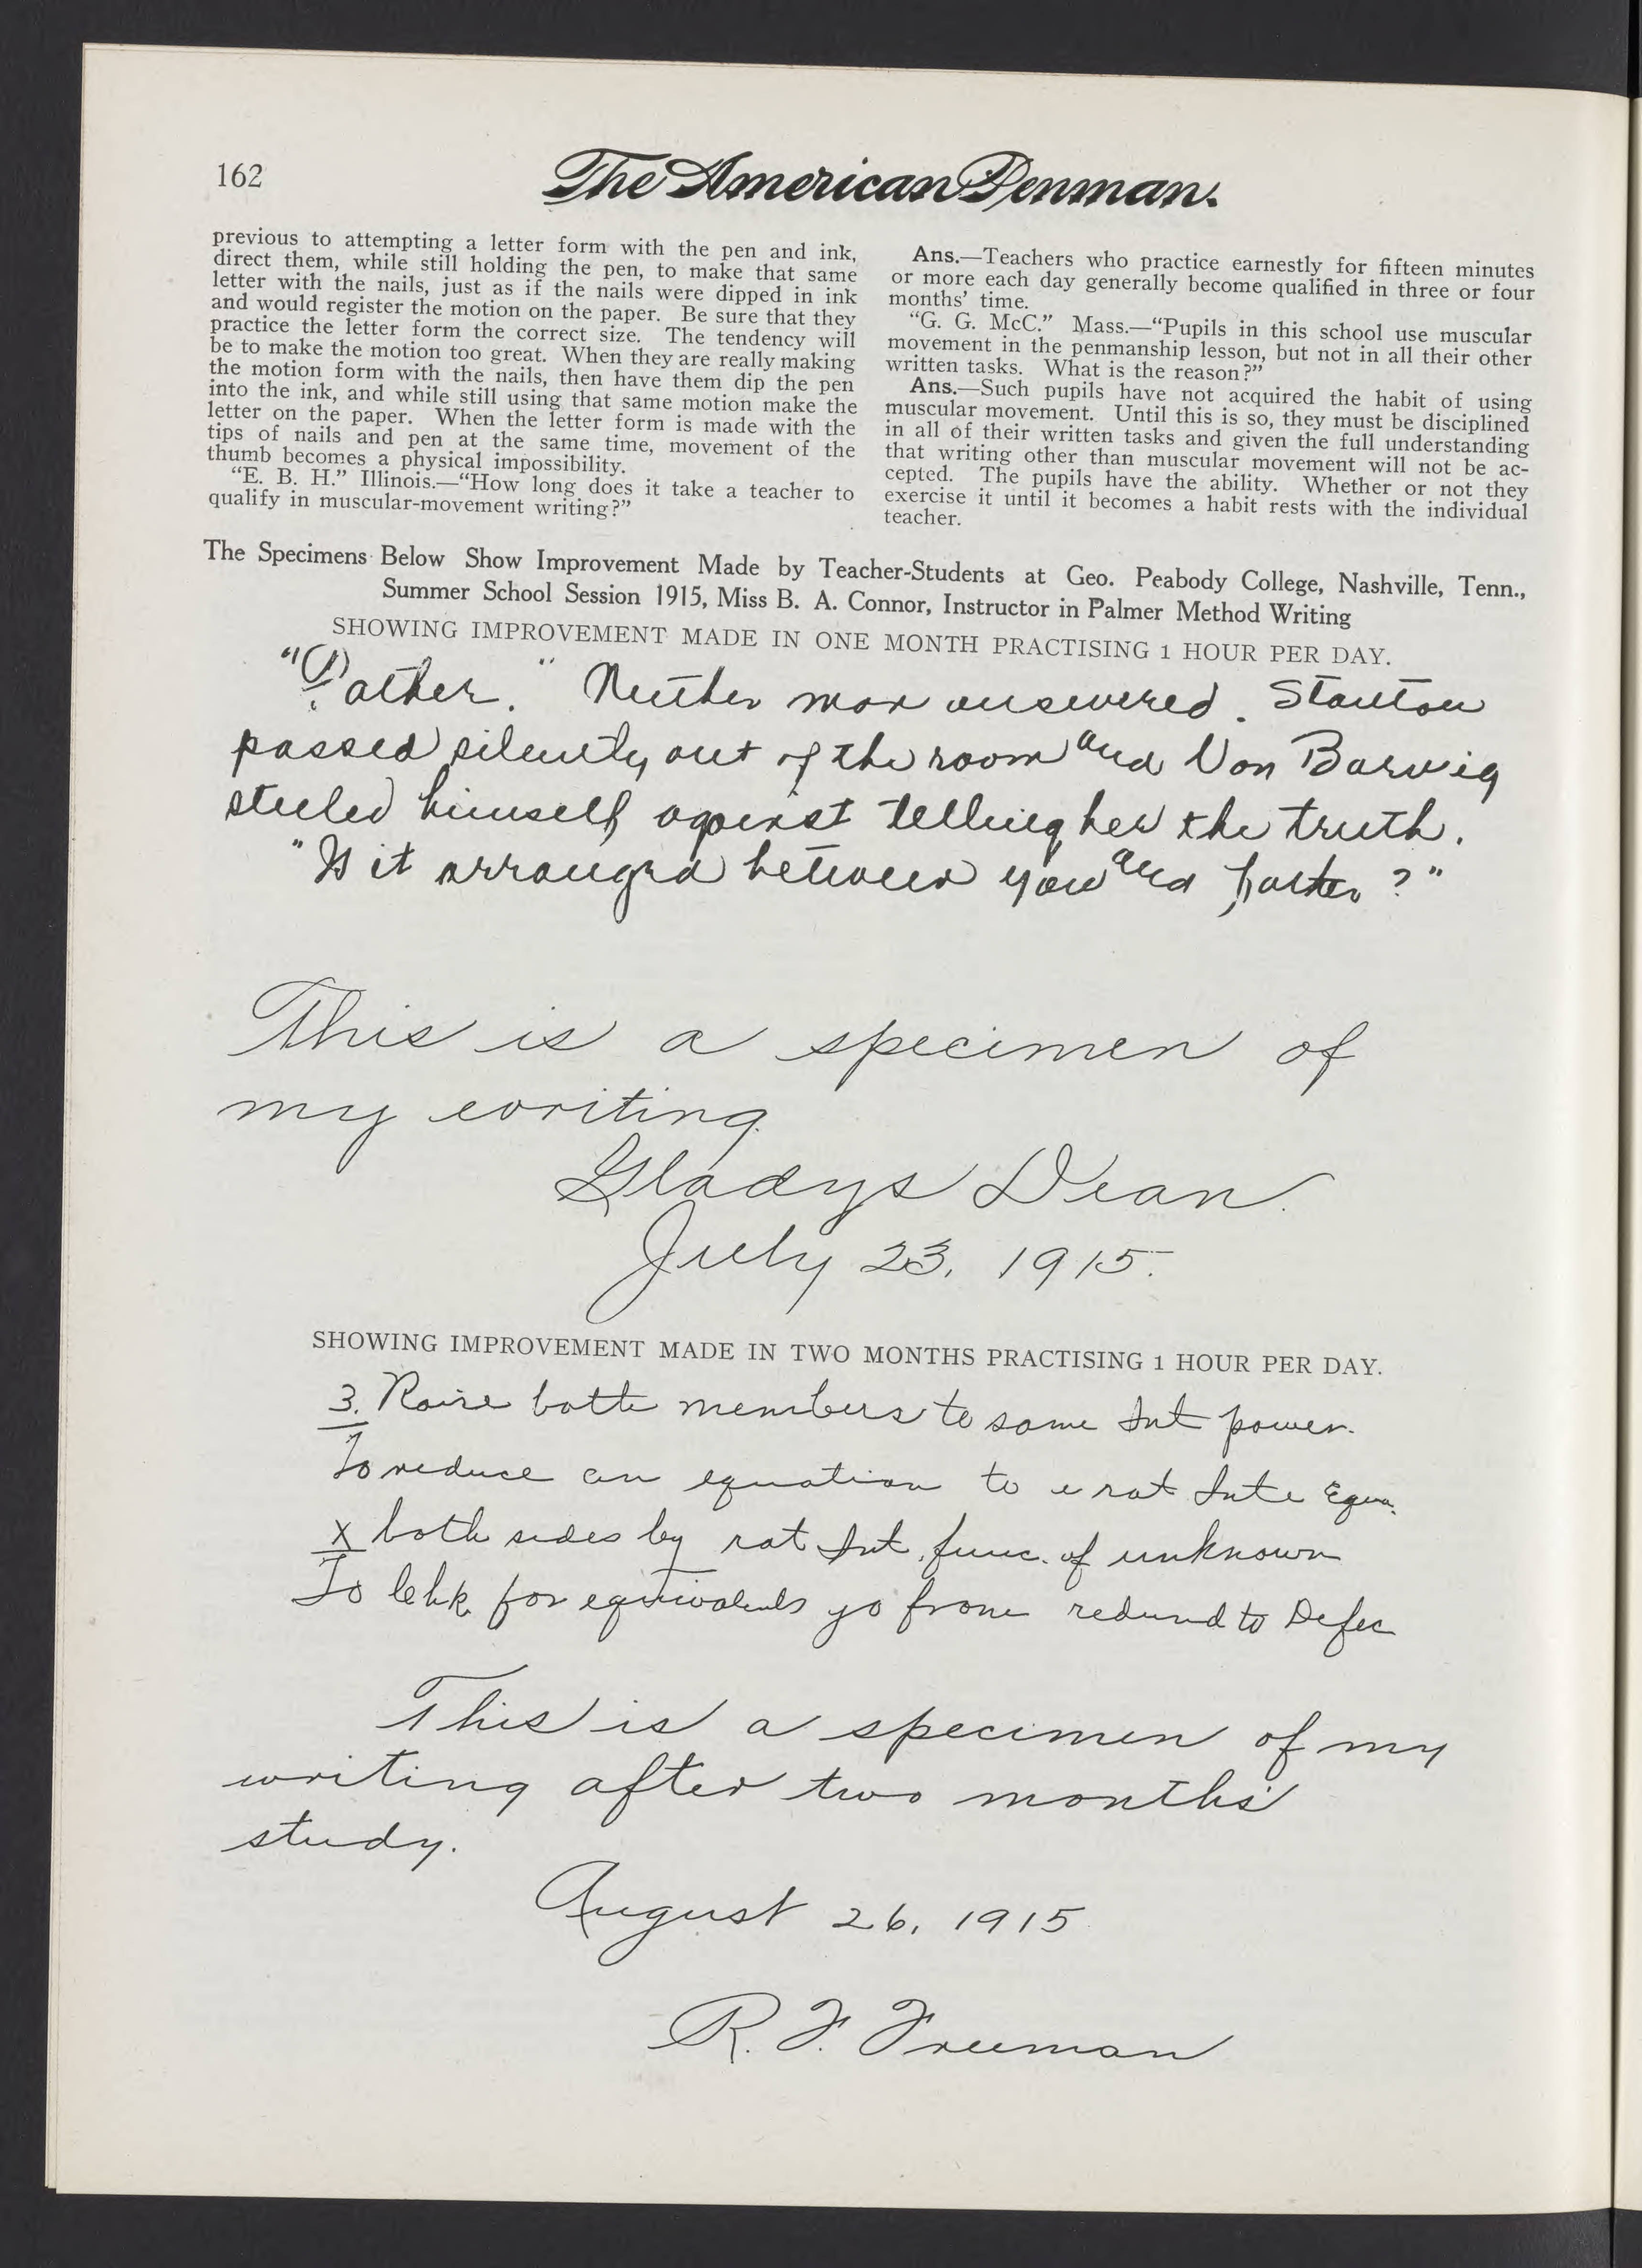 162
The American Penman.
previous to attempting a letter form with the pen and ink,
direct them, while still holding the pen, to make that same
letter with the nails, just as if the nails were dipped in ink
and would register the motion on the paper. Be sure that they
practice the letter form the correct size. The tendency will
be to make the motion too great. When they are really making
the motion form with the nails, then have them dip the pen
into the ink, and while still using that same motion make the
letter on the paper. When the letter form is made with the
tips of nails and pen at the same time, movement of the
thumb becomes a physical impossibility.
"E. B. H." Illinois.—"How long does it take a teacher to
qualify in muscular-movement writing?"
Ans.—Teachers who practice earnestly for fifteen minutes
or more each day generally become qualified in three or four
months' time.
"G. G. McC." Mass.—"Pupils in this school use muscular
movement in the penmanship lesson, but not in all their other
written tasks. What is the reason?"
Ans.—Such pupils have not acquired the habit of using
muscular movement. Until this is so, they must be disciplined
in all of their written tasks and given the full understanding
that writing other than muscular movement will not be ac-
cepted. The pupils have the ability. Whether or not they
exercise it until it becomes a habit rests with the individual
teacher.
The Specimens Below Show Improvement Made by Teacher-Students at Geo. Peabody College, Nashville, Tenn.,
Summer School Session 1915, Miss B. A. Connor, Instructor in Palmer Method Writing
SHOWING IMPROVEMENT MADE IN ONE MONTH PRACTISING 1 HOUR PER DAY.
"Father." Neither man answered. Stanton
passed silently out of the room and Von Barwig
steeled himself against telling her the truth.
"Is it arranged between you and father?"
This is a specimen of
my writing.
Gladys Dean.
July 23, 1915.
SHOWING IMPROVEMENT MADE IN TWO MONTHS PRACTISING 1 HOUR PER DAY.
3. Raise both members to same Int power.
To reduce an equation to a rat Inte Equa.
X both sides by rat Int. func. of unknown
To for equivalents go from redund to Defec
This is a specimen of my
writing after two months'
study.
August 26, 1915
R. F. Freeman